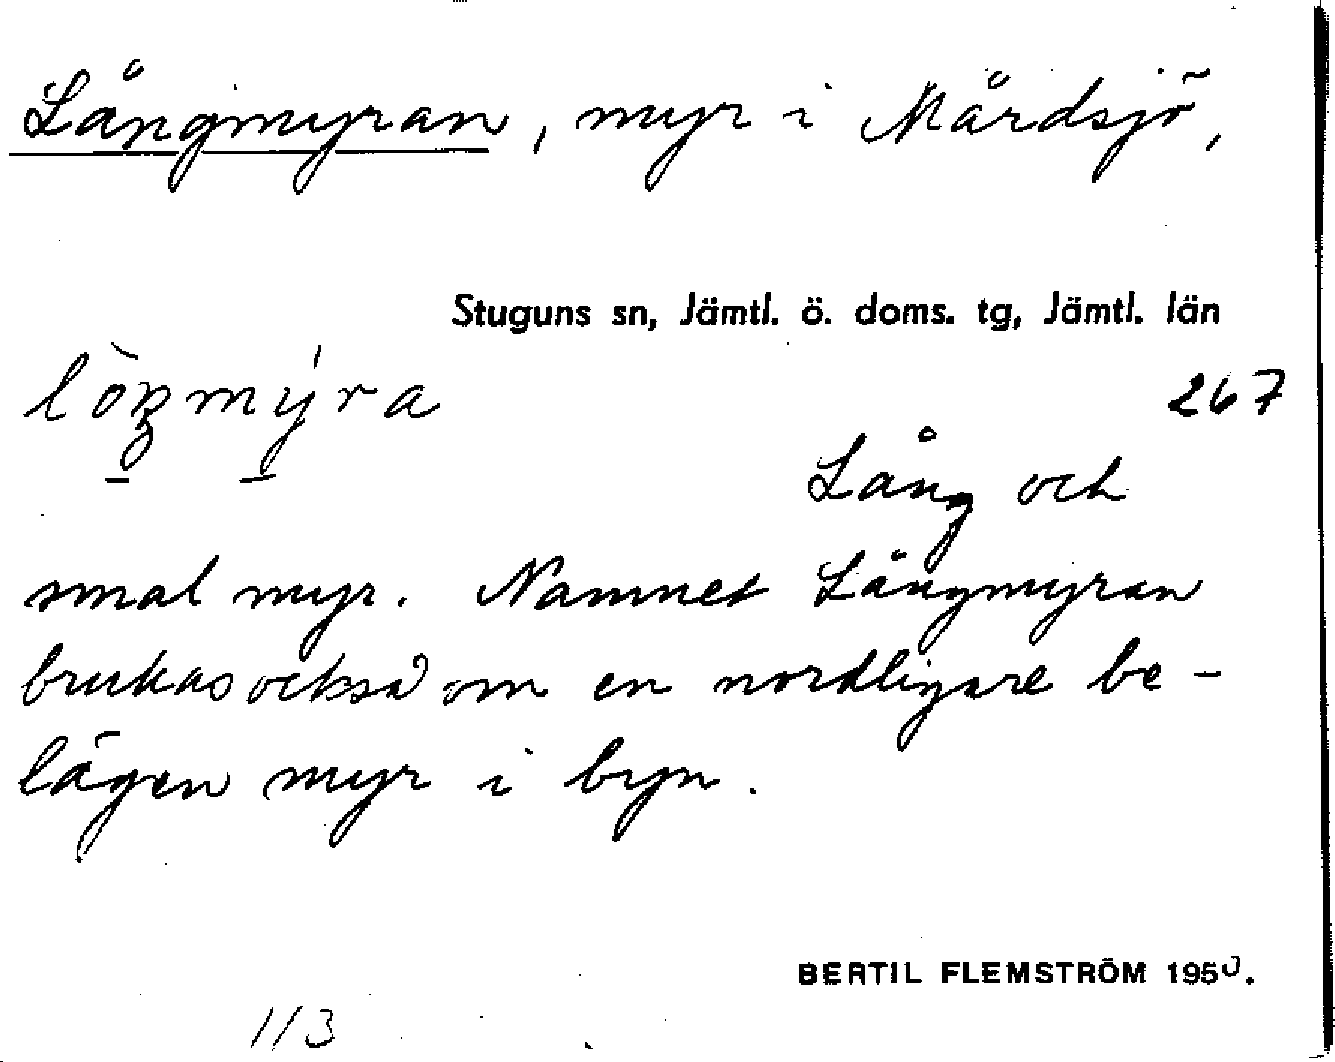 Långmyran, myr i Mårdsjö,
Stuguns sn, Jämtl. ö. doms. tg, Jämtl. län
267
Lång och
smal myr. Namnet Långmyran
brukas också om en nordligare be-
lägen myr i byn.
BERTIL FLEMSTRÖM 1950.
113